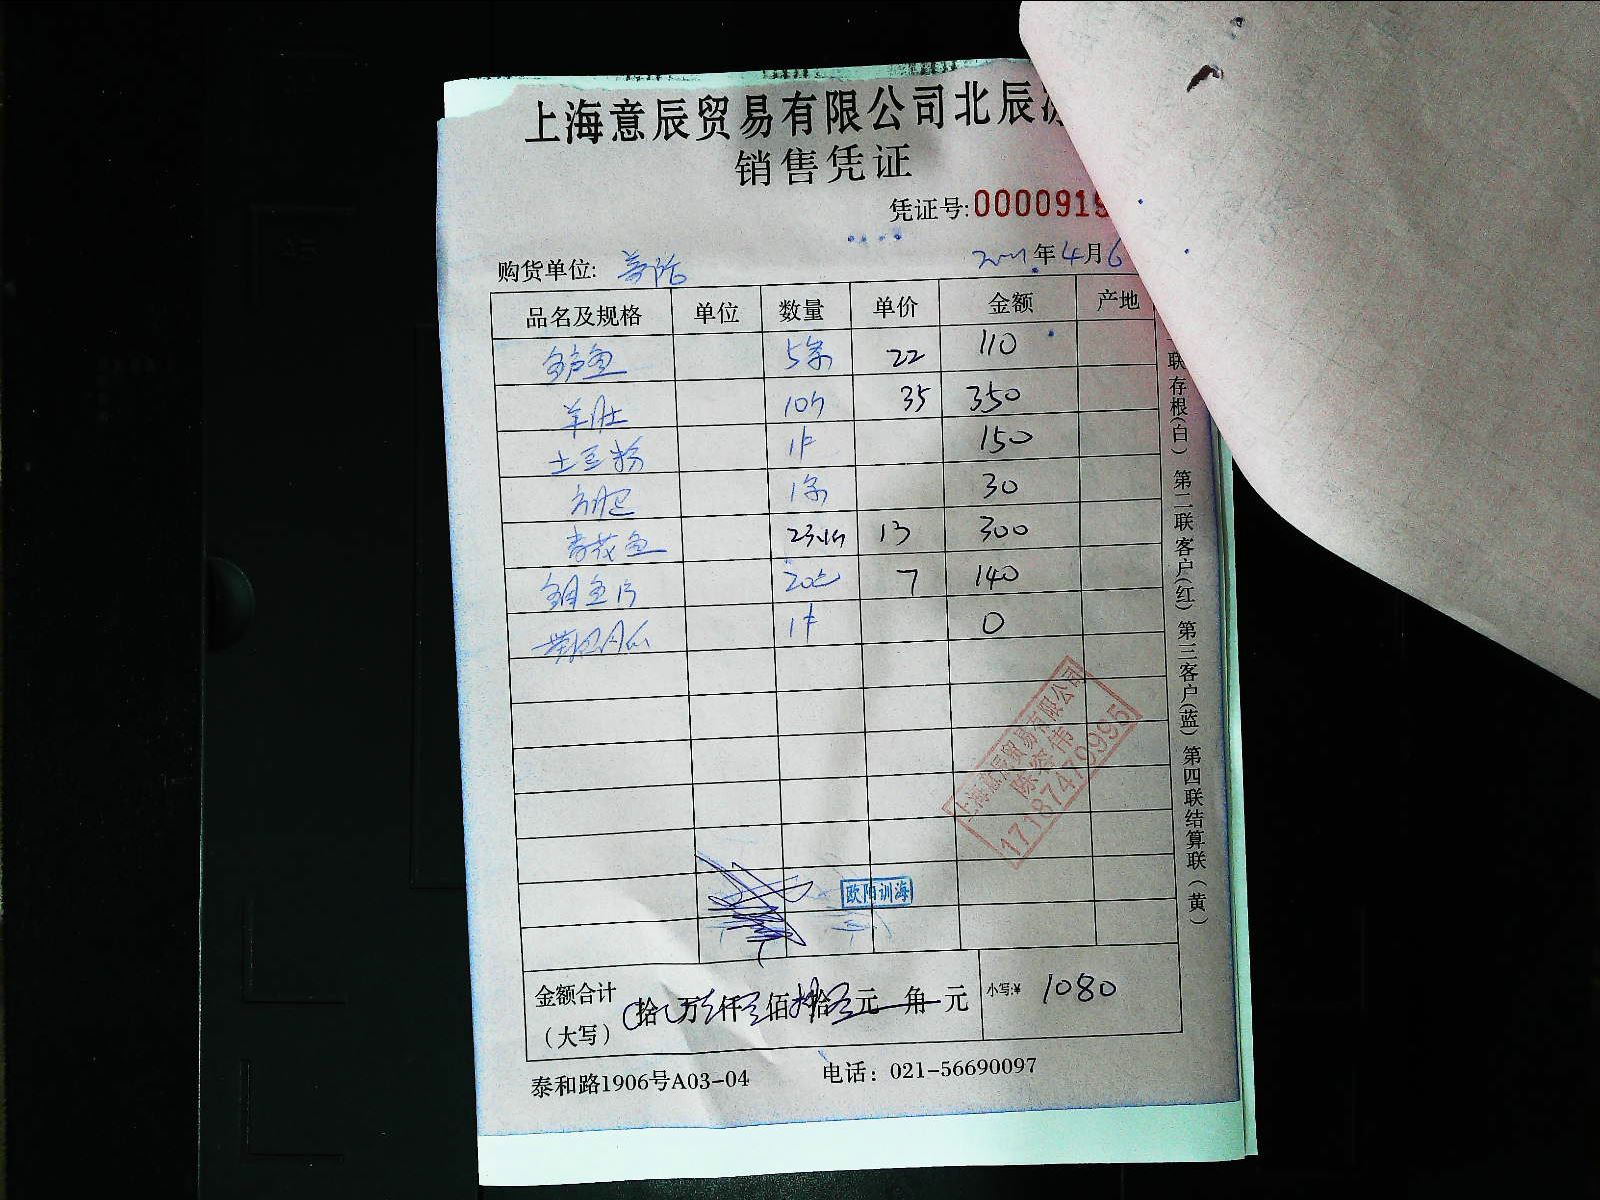 上海意辰贸易有限公司北辰
销售凭证
凭证号:0000919
购货单位: 年4月6
品名及规格 单位 数量 单价 金额 产地
鲈鱼 5条 22 110
羊肚 10斤 35 350
土豆粉 1件 150
1条 30
青花鱼 13 300
鱼片 7 140
1件 0
上海意辰贸易有限公司
17187479995
欧阳训海
金额合计
(大写) 拾 万 仟 佰 拾 元 角 元 小写:¥ 1080
泰和路1906号A03-04 电话：021-56690097
联存根(白) 第二联客户(红) 第三客户(蓝) 第四联结算联(黄)